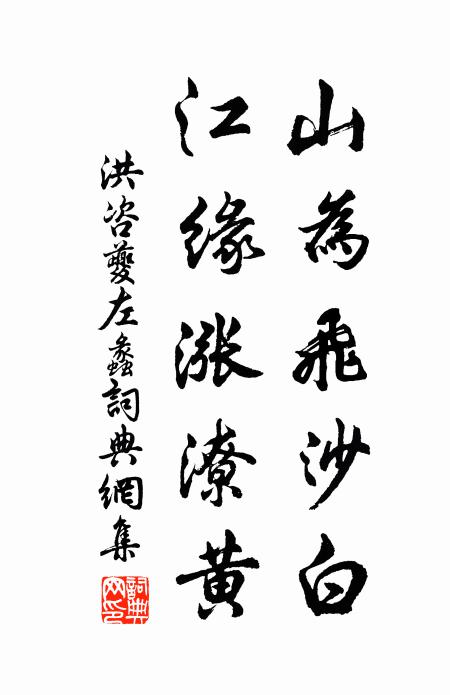 山為飛沙白
江緣漲潦黃
洪咨夔左蠡詞典網集
詞典網印